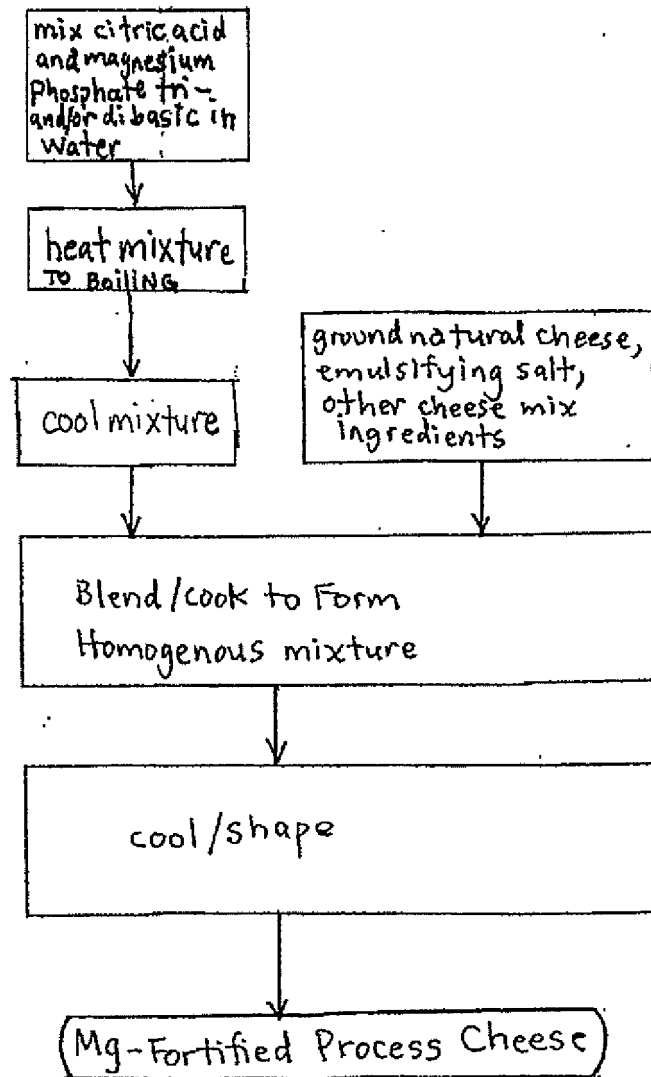 mix citric acid
and magnesium
phosphate tri-
and/or dibasic in
water
heat mixture
TO BoiliNG
cool mixture
ground natural cheese,
emulsifying salt,
other cheese mix
ingredients
Blend/cook to Form
Homogenous mixture
cool/shape
Mg-Fortified Process Cheese